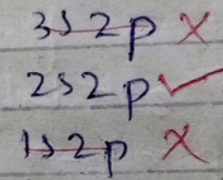 3s 2p ✗
2s 2p ✓
1s 2p ✗